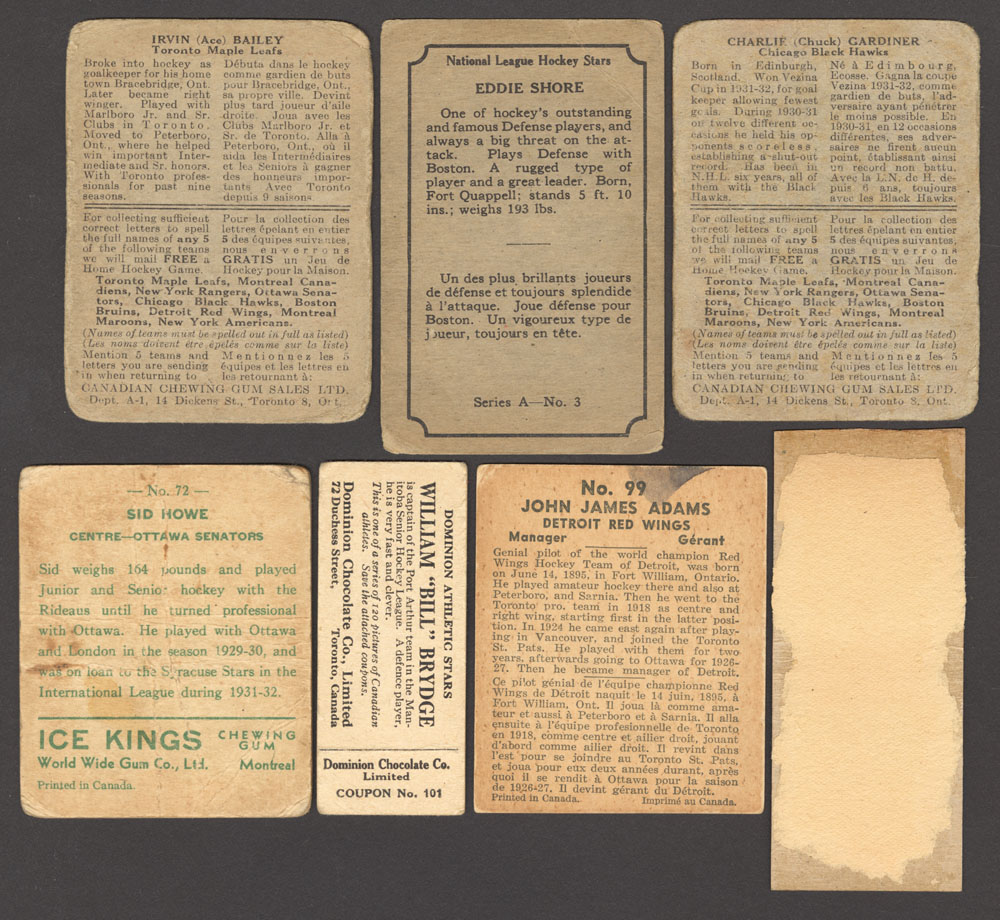 IRVIN (Ace) BAILEY
Toronto Maple Leafs
Broke into hockey as
goalkeeper for his home
town Bracebridge, Ont.
Later became right
winger. Played with
Marlboro Jr. and Sr.
Clubs in Toronto.
Moved to Peterboro,
Ont., where he helped
win important Inter-
mediate and Sr. honors.
With Toronto profes-
sionals for past nine
seasons.
Débuta dans le hockey
comme gardien de buts
pour Bracebridge, Ont.,
sa propre ville. Devint
plus tard joueur d'aile
droite. Joua avec les
Clubs Marlboro Jr. et
Sr. de Toronto. Alla à
Peterboro, Ont., où il
aida les Intermédiaires
et les Seniors à gagner
des honneurs impor-
tants Avec Toronto
depuis 9 saisons
For collecting sufficient
correct letters to spell
the full names of any 5
of the following teams
we will mail FREE a
Home Hockey Game.
Pour la collection des
lettres épelant en entier
5 des équipes suivantes,
nous enverrons
GRATIS un Jeu de
Hockey pour la Maison.
Toronto Maple Leafs, Montreal Cana-
diens, New York Rangers, Ottawa Sena-
tors, Chicago Black Hawks, Boston
Bruins, Detroit Red Wings, Montreal
Maroons, New York Americans.
(Names of teams must be spelled out in full as listed)
(Les noms doivent être épelés comme sur la liste)
Mention 5 teams and
letters you are sending
in when returning to
Mentionnez les 5
équipes et les lettres en
les retournant à:
CANADIAN CHEWING GUM SALES LTD.
Dept. A-1, 14 Dickens St., Toronto 8, Ont.
National League Hockey Stars
EDDIE SHORE
One of hockey's outstanding
and famous Defense players, and
always a big threat on the at-
tack. Plays Defense with
Boston. A rugged type of
player and a great leader. Born,
Fort Quappell; stands 5 ft. 10
ins.; weighs 193 lbs.
Un des plus brillants joueurs
de défense et toujours splendide
à l'attaque. Joue défense pour
Boston. Un vigoureux type de
joueur, toujours en tête.
Series A—No. 3
CHARLIE (Chuck) GARDINER
Chicago Black Hawks
Born in Edinburgh,
Scotland. Won Vezina
Cup in 1931-32, for goal
keeper allowing fewest
goals. During 1930-31
on twelve different oc-
casions he held his op-
ponents scoreless,
establishing a shut-out
record. Has been in
N.H.L. six years, all of
them with the Black
Hawks.
Né à Edimbourg,
Ecosse. Gagna la coupe
Vezina 1931-32, comme
gardien de buts, l'ad-
versaire ayant pénétrer
le moins possible. En
1930-31 en 12 occasions
différentes, ses adver-
saires ne firent aucun
point, établissant ainsi
un record non battu.
Avec la L.N. de H. de-
puis 6 ans, toujours
avec les Black Hawks.
For collecting sufficient
correct letters to spell
the full names of any 5
of the following teams
we will mail FREE a
Home Hockey Game.
Pour la collection des
lettres épelant en entier
5 des équipes suivantes,
nous enverrons
GRATIS un Jeu de
Hockey pour la Maison.
Toronto Maple Leafs, Montreal Cana-
diens, New York Rangers, Ottawa Sena-
tors, Chicago Black Hawks, Boston
Bruins, Detroit Red Wings, Montreal
Maroons, New York Americans.
(Names of teams must be spelled out in full as listed)
(Les noms doivent être épelés comme sur la liste)
Mention 5 teams and
letters you are sending
in when returning to
Mentionnez les 5
équipes et les lettres en
les retournant à:
CANADIAN CHEWING GUM SALES LTD.
Dept. A-1, 14 Dickens St., Toronto 8, Ont.
— No. 72 —
SID HOWE
CENTRE—OTTAWA SENATORS
Sid weighs 164 pounds and played
Junior and Senior hockey with the
Rideaus until he turned professional
with Ottawa. He played with Ottawa
and London in the season 1929-30, and
was on loan to the Syracuse Stars in the
International League during 1931-32.
ICE KINGS CHEWING GUM
World Wide Gum Co., Ltd. Montreal
Printed in Canada.
DOMINION ATHLETIC STARS
WILLIAM "BILL" BRYDGE
is captain of the Port Arthur team in the Man-
itoba Senior Hockey League. A defence player,
he is very fast and clever.
This is one of a series of 120 pictures of Canadian
athletes. Save the attached coupons.
Dominion Chocolate Co., Limited
72 Duchess Street, Toronto, Canada
Dominion Chocolate Co.
Limited
COUPON No. 101
No. 99
JOHN JAMES ADAMS
DETROIT RED WINGS
Manager Gérant
Genial pilot of the world champion Red
Wings Hockey Team of Detroit, was born
on June 14, 1895, in Fort William, Ontario.
He played amateur hockey there and also at
Peterboro, and Sarnia. Then he went to the
Toronto pro. team in 1918 as centre and
right wing, starting first in the latter posi-
tion. In 1924 he came east again after play-
ing in Vancouver, and joined the Toronto
St. Pats. He played with them for two
years, afterwards going to Ottawa for 1926-
27. Then he became manager of Detroit.
Ce pilot génial de l'équipe championne Red
Wings de Détroit naquit le 14 juin, 1895, à
Fort William, Ont. Il joua là comme ama-
teur et aussi à Peterboro et à Sarnia. Il alla
ensuite à l'équipe profesionnelle de Toronto
en 1918, comme centre et ailier droit, jouant
d'abord comme ailier droit. Il revint dans
l'est pour se joindre au Toronto St. Pats,
et joua pour eux deux années durant, après
quoi il se rendit à Ottawa pour la saison
de 1926-27. Il devint gérant du Détroit.
Printed in Canada. Imprimé au Canada.